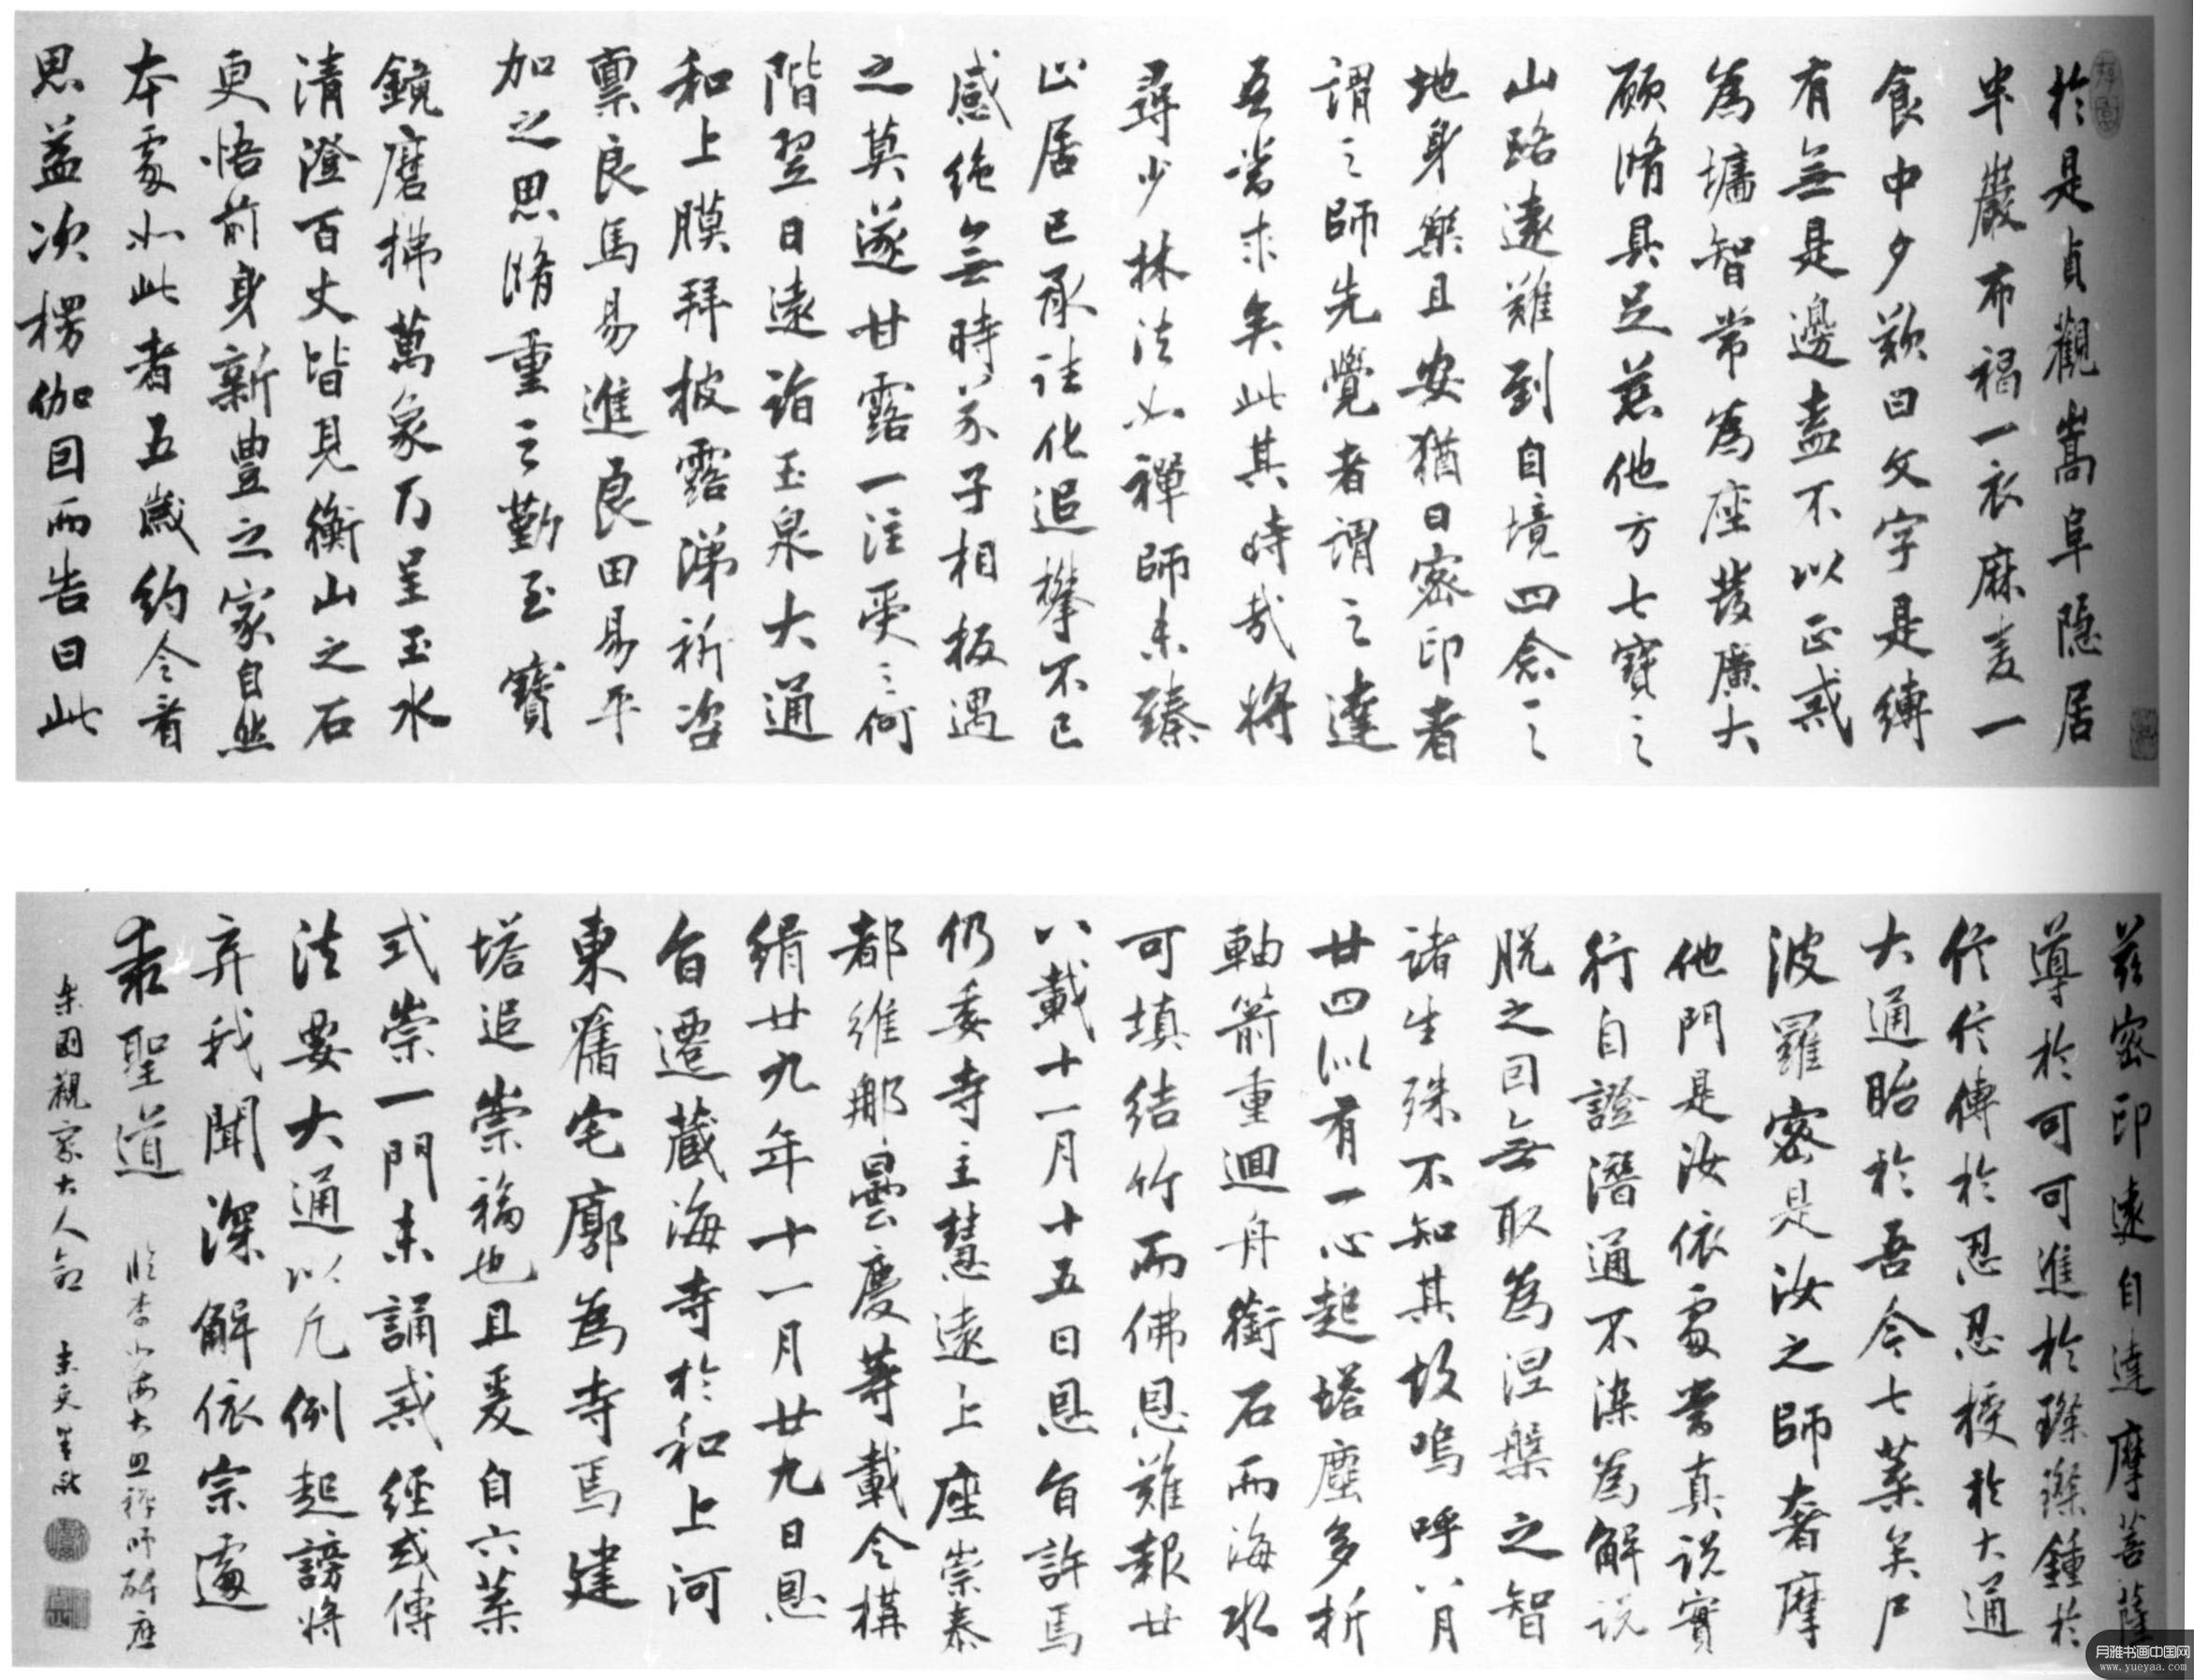 於是貞觀嵩阜隱居
半巖布褐一衣麻麦一
食中夕歎曰文字是縛
有無是邊盍不以正戒
為墉智常為座發廣大
願脩具足慈他方七寶之
山路遠難到自境四念之
地身樂且安猶曰密印者
謂之師先覺者謂之達
吾當求矣此其時哉將
尋少林法如禪師未臻
止居已承往化追攀不已
感絕無時芥子相板遇
之莫遂甘露一注受之何
階翌日遠詣玉泉大通
和上膜拜披露涕祈咨
禀良馬易進良田易平
加之思脩重之勤至寶
鏡磨拂萬象乃呈玉水
清澄百丈皆見衡山之石
更悟前身新豊之家自然
本處如此者五歲約令看
思益次楞伽因而告曰此
茲密印遠自達摩菩薩
導於可可進於璨璨鍾於
信信傳於忍忍授於大通
大通貽於吾今七葉矣尸
波羅密是汝之師奢摩
他門是汝依處當真說實
行自證潛通不染為解說
脫之因無取為涅槃之智
諸生殊不知其故嗚呼八月
廿四以有一心起塔塵多析
軸箭重迴舟銜石而海水
可填結竹而佛恩難報廿
八載十一月十五日恩旨許焉
仍委寺主慧遠上座崇泰
都維那曇慶等載令構
緝廿九年十一月廿九日恩
旨遷藏海寺於和上河
東舊宅廓為寺焉建
塔追崇福也且爰自六葉
式崇一門未誦戒經或傳
法要大通以凡例起謗將
弃我聞深解依宗處
乘聖道
臨李北海大照禪師碑應
樂圃親家大人命
月雅书画中国网
www.yueyaa.com